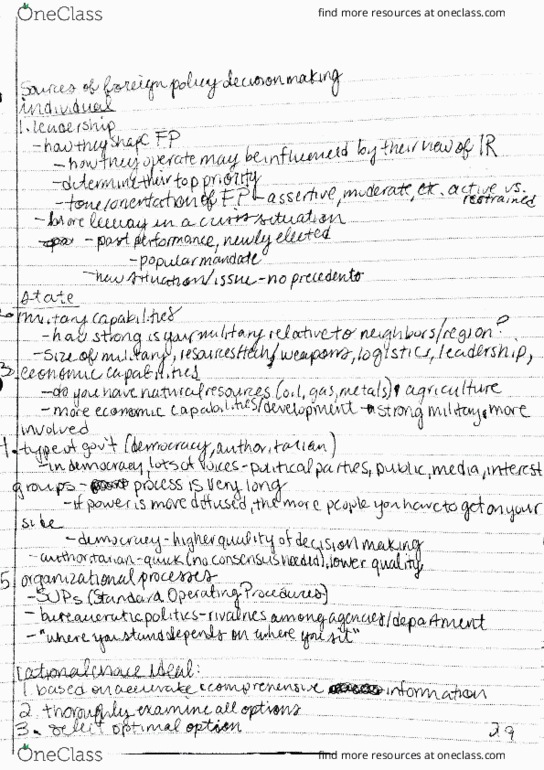 OneClass
find more resources at oneclass.com
Sources of foreign policy decision making
individual
1. leadership
- how they shape FP
- how they operate may be influenced by their view of IR
- determine their top priority
- tone/orientation of FP - assertive, moderate, etc. active vs. restrained
- more leeway in a crisis situation
- past performance, newly elected
- popular mandate
- new situation/issue - no precedents
state
2. military capabilities
- how strong is your military relative to neighbors/region?
- size of military, resources/tech/weapons, logistics, leadership,
3. economic capabilities
- do you have natural resources (oil, gas, metals), agriculture
- more economic capabilities/development strong military, more
involved
4. type of gov't (democracy, authoritarian)
- in democracy, lots of voices - political parties, public, media, interest
groups - process is very long
- if power is more diffused, the more people you have to get on your
side
- democracy - higher quality of decision making
- authoritarian - quick (no consensus needed), lower quality
5. organizational processes
- SOPs (Standard Operating Procedures)
- bureaucratic politics - rivalries among agencies/department
- "where you stand depends on where you sit"
rational choice ideal:
1. based on accurate & comprehensive information
2. thoroughly examine all options
3. select optimal option
29
OneClass
find more resources at oneclass.com